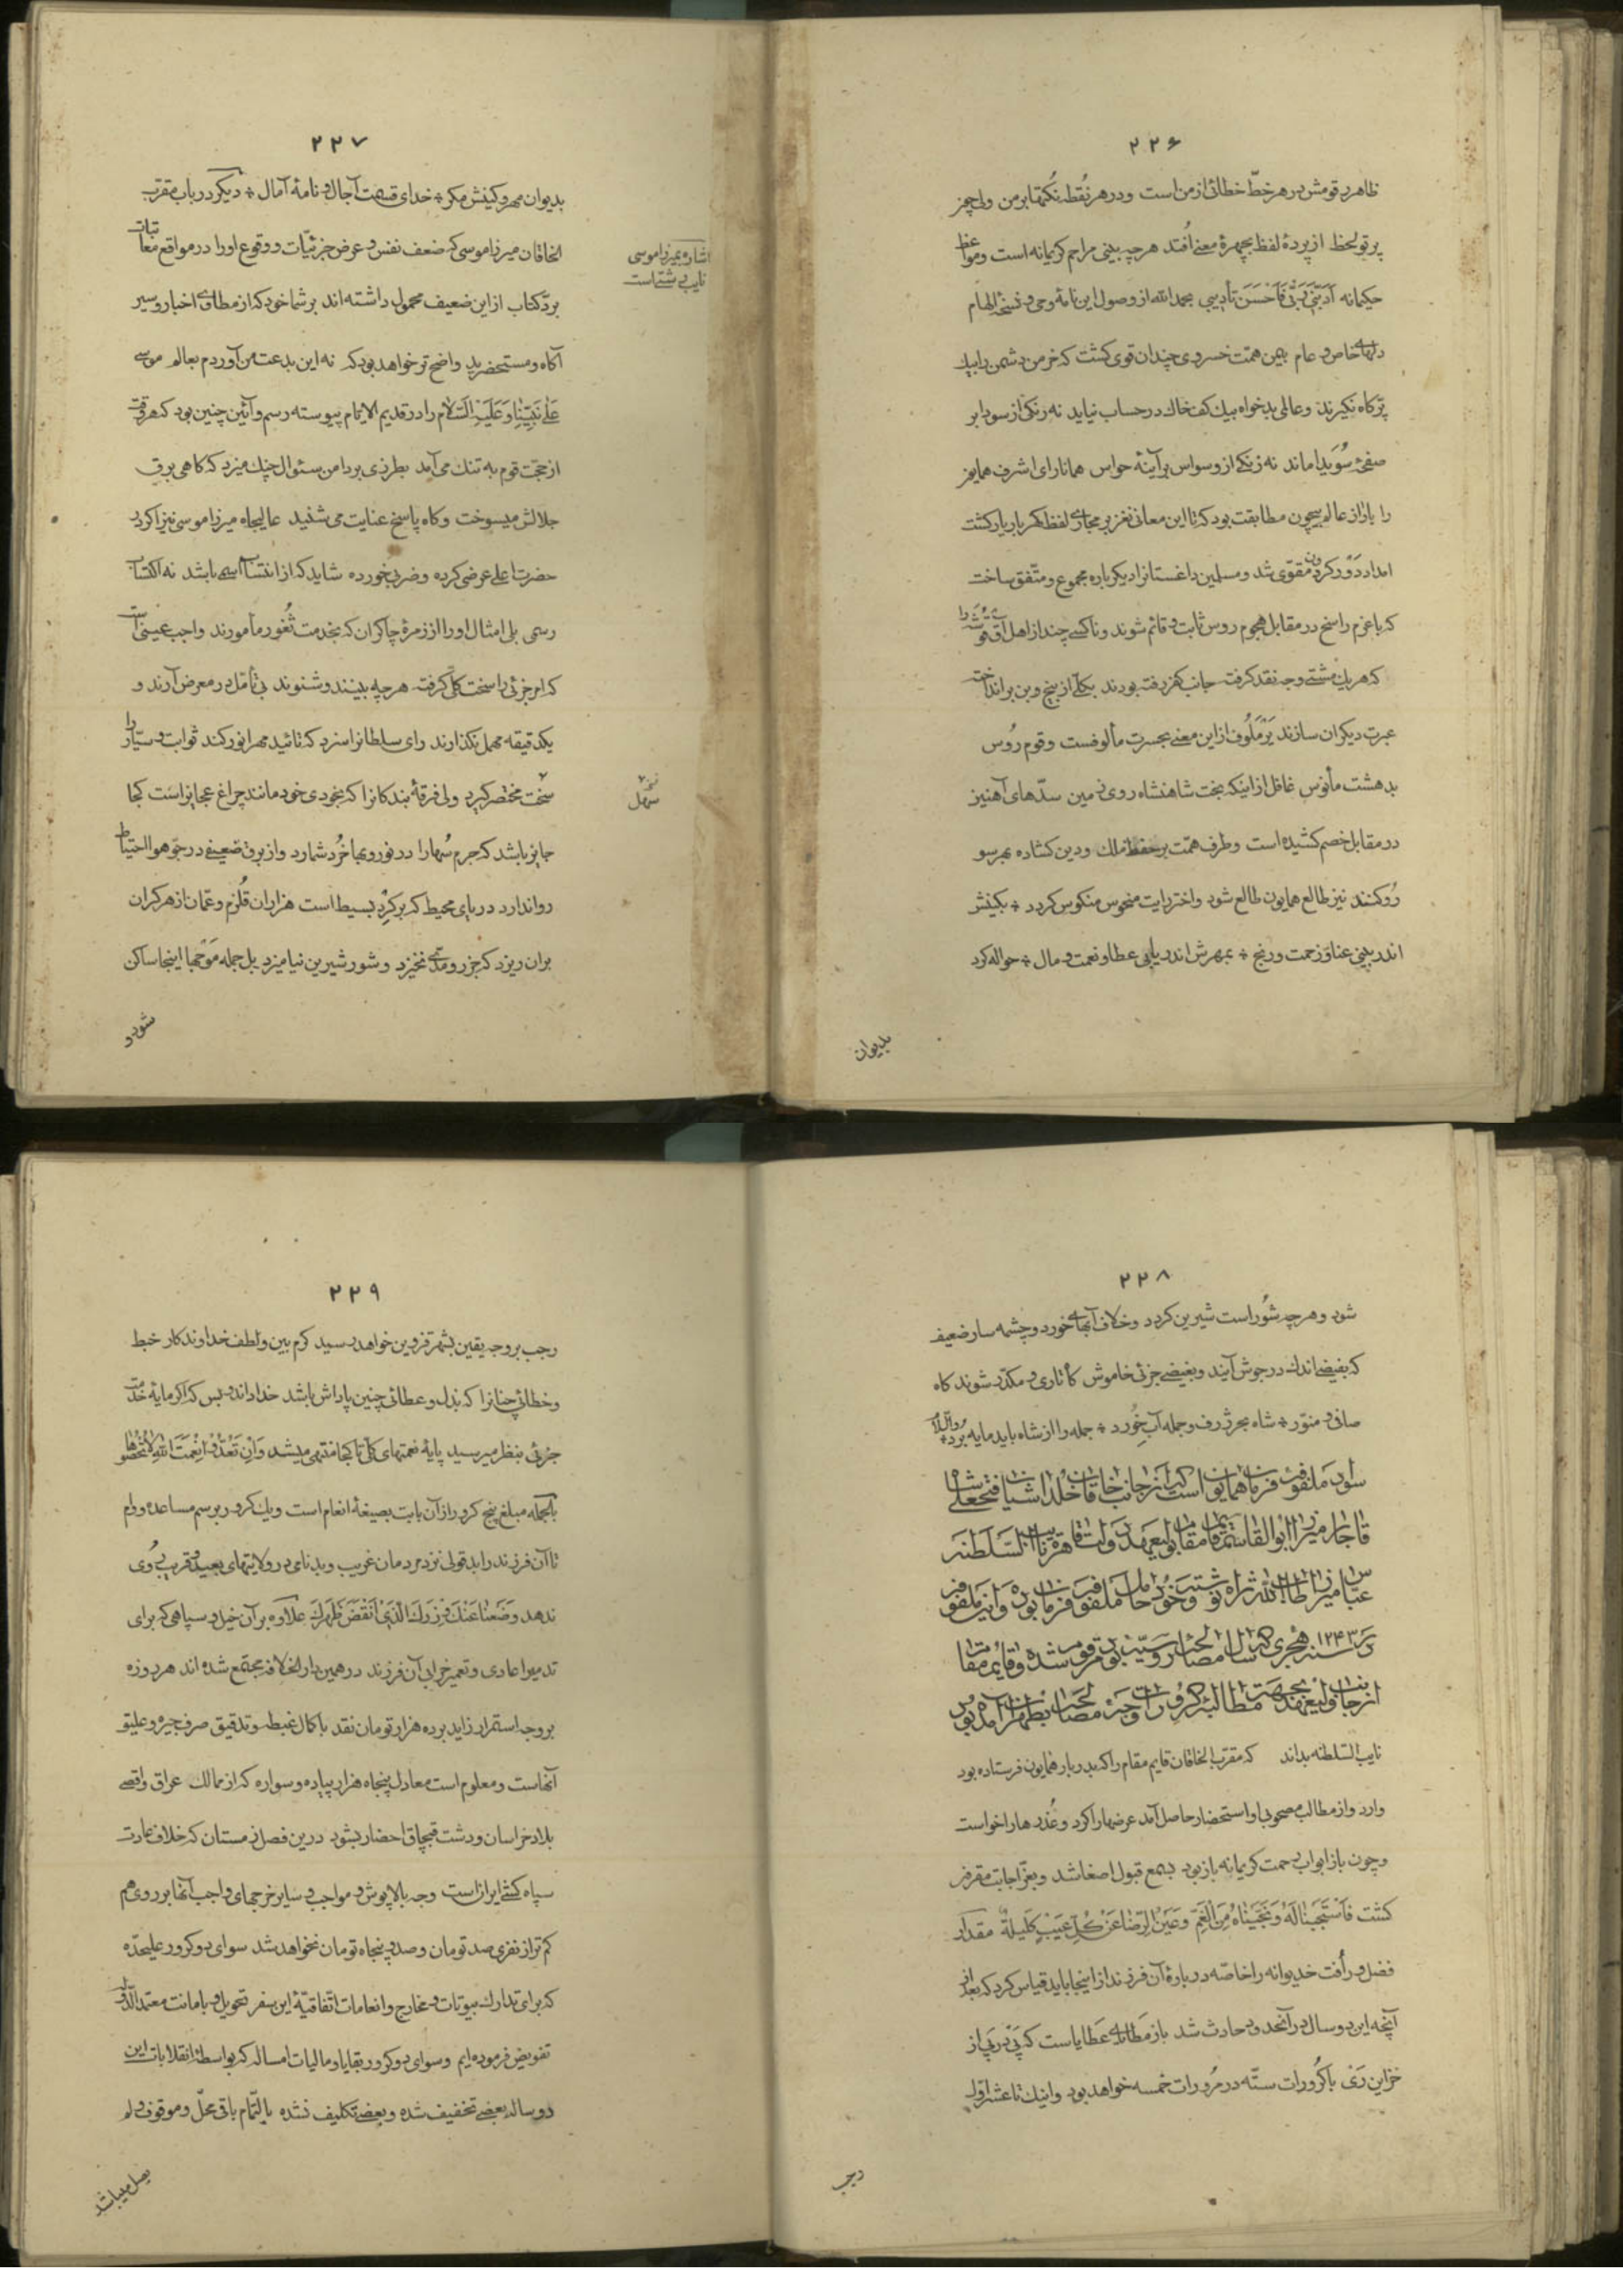 ۲۲۶
ظاهر مرقومش در هر خطّ خطائی از من است و در هر نُقطه نُکتها بر من ولی چون
پرتو لحظ از پردهٔ لفظ بچهرهٔ معنی اُفتد هر چه بینی مراحم کریمانه است و مواعظ
حکیمانه اَدَّبَنی رَبّی فَاَحْسَنَ تأدیبی بحمد الله از وصول این نامهٔ وحی و نسخهٔ الهام
دلهای خاص و عام بیمن همّت خسروی چندان قوی گشت که خرمن دشمن را بیک
پرّ کاه نگیرند و عالمی بدخواه بیک کف خاک در حساب نیاید نه رنگی از سودا بر
صفحهٔ سُوَیدا ماند نه زنگی از وسواس بر آینهٔ حواس همانا رای اشرف همایون
را با راز عالم بیچون مطابقت بود که تا این معانی نغز بر مجاری لفظ گهر بار یار گشت
امداد دَوْر گردون مقوّی شد و مسلمین داغستانرا دیگر باره مجموع و متّفق ساخت
که با عزم راسخ در مقابل هجوم روس ثابت و قائم شوند و ناکسی چند از اهل آق قُوشه را
که هر یک مشتی وجه نقد گرفته جانب کفر رفته بودند بکلّی از بیخ و بن بر انداخته
عبرت دیگران سازند یَرْمَلُوف از این معنی بحسرت مألوفست و قوم رُوس
بدهشت مأنوس غافل از اینکه بخت شاهنشاه روی زمین سدّهای آهنین
در مقابل خصم کشیده است و طرف همّت بر حفظ ملک و دین گشاده بهر سو
رُو کنند نیز طالع همایون طالع شود و اختر رایت منحوس منکوس گردد ÷ بکینش
اندر بینی عنا و زحمت و رنج ÷ بمهرش اندر یابی عطا و نعمت و مال ÷ حواله کرد
بدیوان
۲۲۷
بدیوان مهر و کینش مگر ÷ خدای قسمت آجال و نامهٔ آمال ÷ دیگر در باب مقرّب
الخاقان میرزا موسی که ضعف نفس و عرض جزئیّات و وقوع او را در مواقع معاتبات
اشاره بمیرزا موسی
نایب رشت است
بردّ کتاب از این ضعیف محمول داشته‌اند بر شما خود که از مطاوی اخبار و سیر
آگاه و مستحضرید واضح تر خواهد بود که نه این بدعت من آوردم بعالم موسی
عَلی نَبیّنا وَ عَلَیهِ السَّلام را در قدیم الایّام پیوسته رسم و آئین چنین بود که هر وقت
از حجّت قوم به تنگ می‌آمد بطرزی بر دامن سئوال چنگ میزد که گاهی برق
جلالش میسوخت و گاه پاسخ عنایت می‌شنید عالیجاه میرزا موسی نیز اگر در
حضرت اعلی عرضی کرده و ضربی خورده شاید که از انتساب اسمی باشد نه اکتساب
رسمی بلی امثال او را از زمرهٔ چاکران که بخدمت ثُغور مأمورند واجب عینی است
که امر جزئی را سخت کلّی گرفته هر چه بینند و شنوند بی تأمّل در معرض آرند و
یکدقیقه مهمل نگذارند رای سلطانرا سزد که تائید مهر انور کند ثوابت و سیّار را
سخت مختصر گیرد ولی فرقهٔ بندگانرا که بخودی خود مانند چراغ عجایز است کجا
نسخه
سهل
جایز باشد که جرم سُها را در نور و بها خُرد شمارد و از برق ضعیفی در جوّ هوا احتیاط
روا ندارد دریای محیط که بر گِرد بسیط است هزاران قُلزم و عمّان از هر کران
بران ریزد که جزر و مدّی نخیزد و شور شیرین نیامیزد بل جمله مَوْجها اینجا ساکن
شود و
۲۲۸
شود و هر چه شُور است شیرین گردد و خلاف آبهای خورد و چشمه سار ضعیف
که بفیضی اندک در جوش آیند و بغیضی جزئی خاموش گاه تاری و مکدّر شوند گاه
صافی و منوّر ÷ شاه بحر ژرف و جمله آب خُورد ÷ جمله را از شاه باید مایه بُرد والسّلام
سواد ملفوفه فرمان همایون است که از جانب خاقان خُلد آشیان فتحعلی شاه
قاجار میرزا ابوالقاسم قایم مقام بولیعهد دولت قاهره نایب السّلطنه
عبّاس میرزا طاب الله ثراه نوشته و خود حامل ملفوفه فرمان بوده و این ملفوفه
در سنه ۱۲۴۳ هجری که سال مصالحه با روسیّه بود مرقوم شده و قایم مقام
از جانب ولیعهد بجهت مطالبهٔ کرورات وجه مصالحه بطهران آمده بود
نایب السّلطنه بداند که مقرّب الخاقان قایم مقام را که بدربار همایون فرستاده بود
وارد و از مطالب مصحوبی او استحضار حاصل آمد عرضها را کرد و عُذرها را خواست
و چون باز ابواب رحمت کریمانه باز بود بسمع قبول اصغا شد و بعزّ اجابت مقرون
گشت فَاسْتَجَبْنا لَهُ وَ نَجَّیْناهُ مِنَ الْغَمّ وَ عَیْنُ الرِّضا عَنْ کُلِّ عَیْبٍ کَلیلَةٌ مقدار
فضل و رأفت خدیوانه را خاصّه در بارهٔ آن فرزند از اینجا باید قیاس کرد که بعد از
آنچه این دو سال در آنحدود حادث شد باز مَطایای عَطایاست که پَیْ در پَیْ از
خزاین رَیْ با کُرُورات ستّه در مُرورات خمسه خواهد بود و اینک تا عشر اوّل
رجب
۲۲۹
رجب بر وجه یقین بشهر قزوین خواهد رسید کرم بین و لطف خداوندگار خبط
و خطائی چنانرا که بذل و عطائی چنین پاداش باشد خدا داند و بس که اگر مایهٔ خدمت
جزئی بنظر میرسید پایهٔ نعمتهای کلّی تا کجا منتهی میشد وَ اِنْ تَعُدُّوا نِعْمَتَ اللهِ لا تُحْصُوها
بالجمله مبلغ پنج کرور از آن بابت بصیغهٔ انعام است و یک کرور برسم مساعده و وام
تا آن فرزند را بد قولی نزد مردمان غریب و بدنامی در ولایتهای بعید و قریب رُوی
ندهد وَ وَضَعْنا عَنْکَ وِزْرَکَ الَّذی اَنْقَضَ ظَهْرَکَ علاوه بر آن خیل و سپاهی که برای
تدمیر اعادی و تعمیر خرابی آن فرزند در همین دار الخلافه مجتمع شده‌اند هر روزه
بر وجه استمرار زاید بر ده هزار تومان نقد با کمال غبطه و تدقیق صرف جیره و علیق
آنهاست و معلوم است معادل پنجاه هزار پیاده و سواره که از ممالک عراق و اقصی
بلاد خراسان و دشت قبچاق احضار بشود درین فصل زمستان که خلاف عادت
سپاه کشی ایران است وجه بالاپوش و مواجب و سایر خرجهای واجب آنها بر روی هم
کم تر از نفری صد تومان و صد و پنجاه تومان نخواهد شد سوای دو کرور علیحدّه
که برای تدارک بیوتات و مخارج و انعامات اتّفاقیّهٔ این سفر تحویل و بامانت معتمد الدّوله
تفویض فرموده‌ایم و سوای دو کرور بقایا و مالیات امساله که بواسطهٔ انقلابات این
دو ساله بعضی تخفیف شده و بعضی تکلیف نشده بالتّمام باقی محلّ و موقوف و لم
یصل میباشد